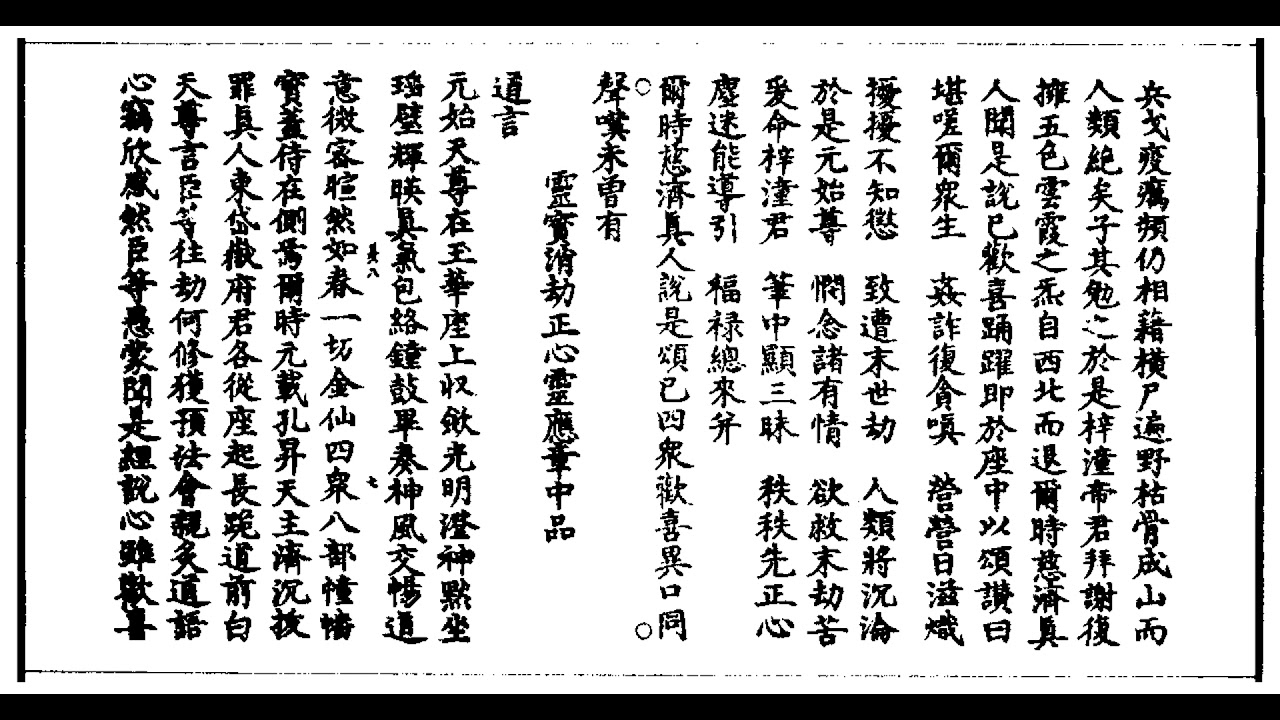 兵戈疫癘頻仍相藉橫尸遍野枯骨成山而
人類絶矣子其勉之於是梓潼帝君拜謝復
擁五色雲霞之炁自西北而退爾時慈濟真
人聞是說已歡喜踊躍即於座中以頌讚曰
堪嗟爾衆生　姦詐復貪嗔　營營日滋熾
擾擾不知愆　致遭末世劫　人類將沉淪
於是元始尊　憫念諸有情　欲救末劫苦
爰命梓潼君　筆中顯三昧　秩秩先正心
塵迷能導引　福祿總來并
爾時慈濟真人說是頌已四衆歡喜異口同
聲嘆未曾有
靈寳消劫正心靈應章中品
道言
元始天尊在玉華座上収斂光明澄神默坐
瑶壁輝暎真氣包絡鐘鼓畢奏神風交暢道
意微密暄然如春一切金仙四衆八部幢幡
寳蓋侍在側焉爾時元載孔昇天主濟沉拔
罪真人東岱嶽府君各從座起長跪道前白
天尊言臣等往劫何修獲預法會親炙道語
心竊欣感然臣等愚蒙聞是經說心雖歡喜